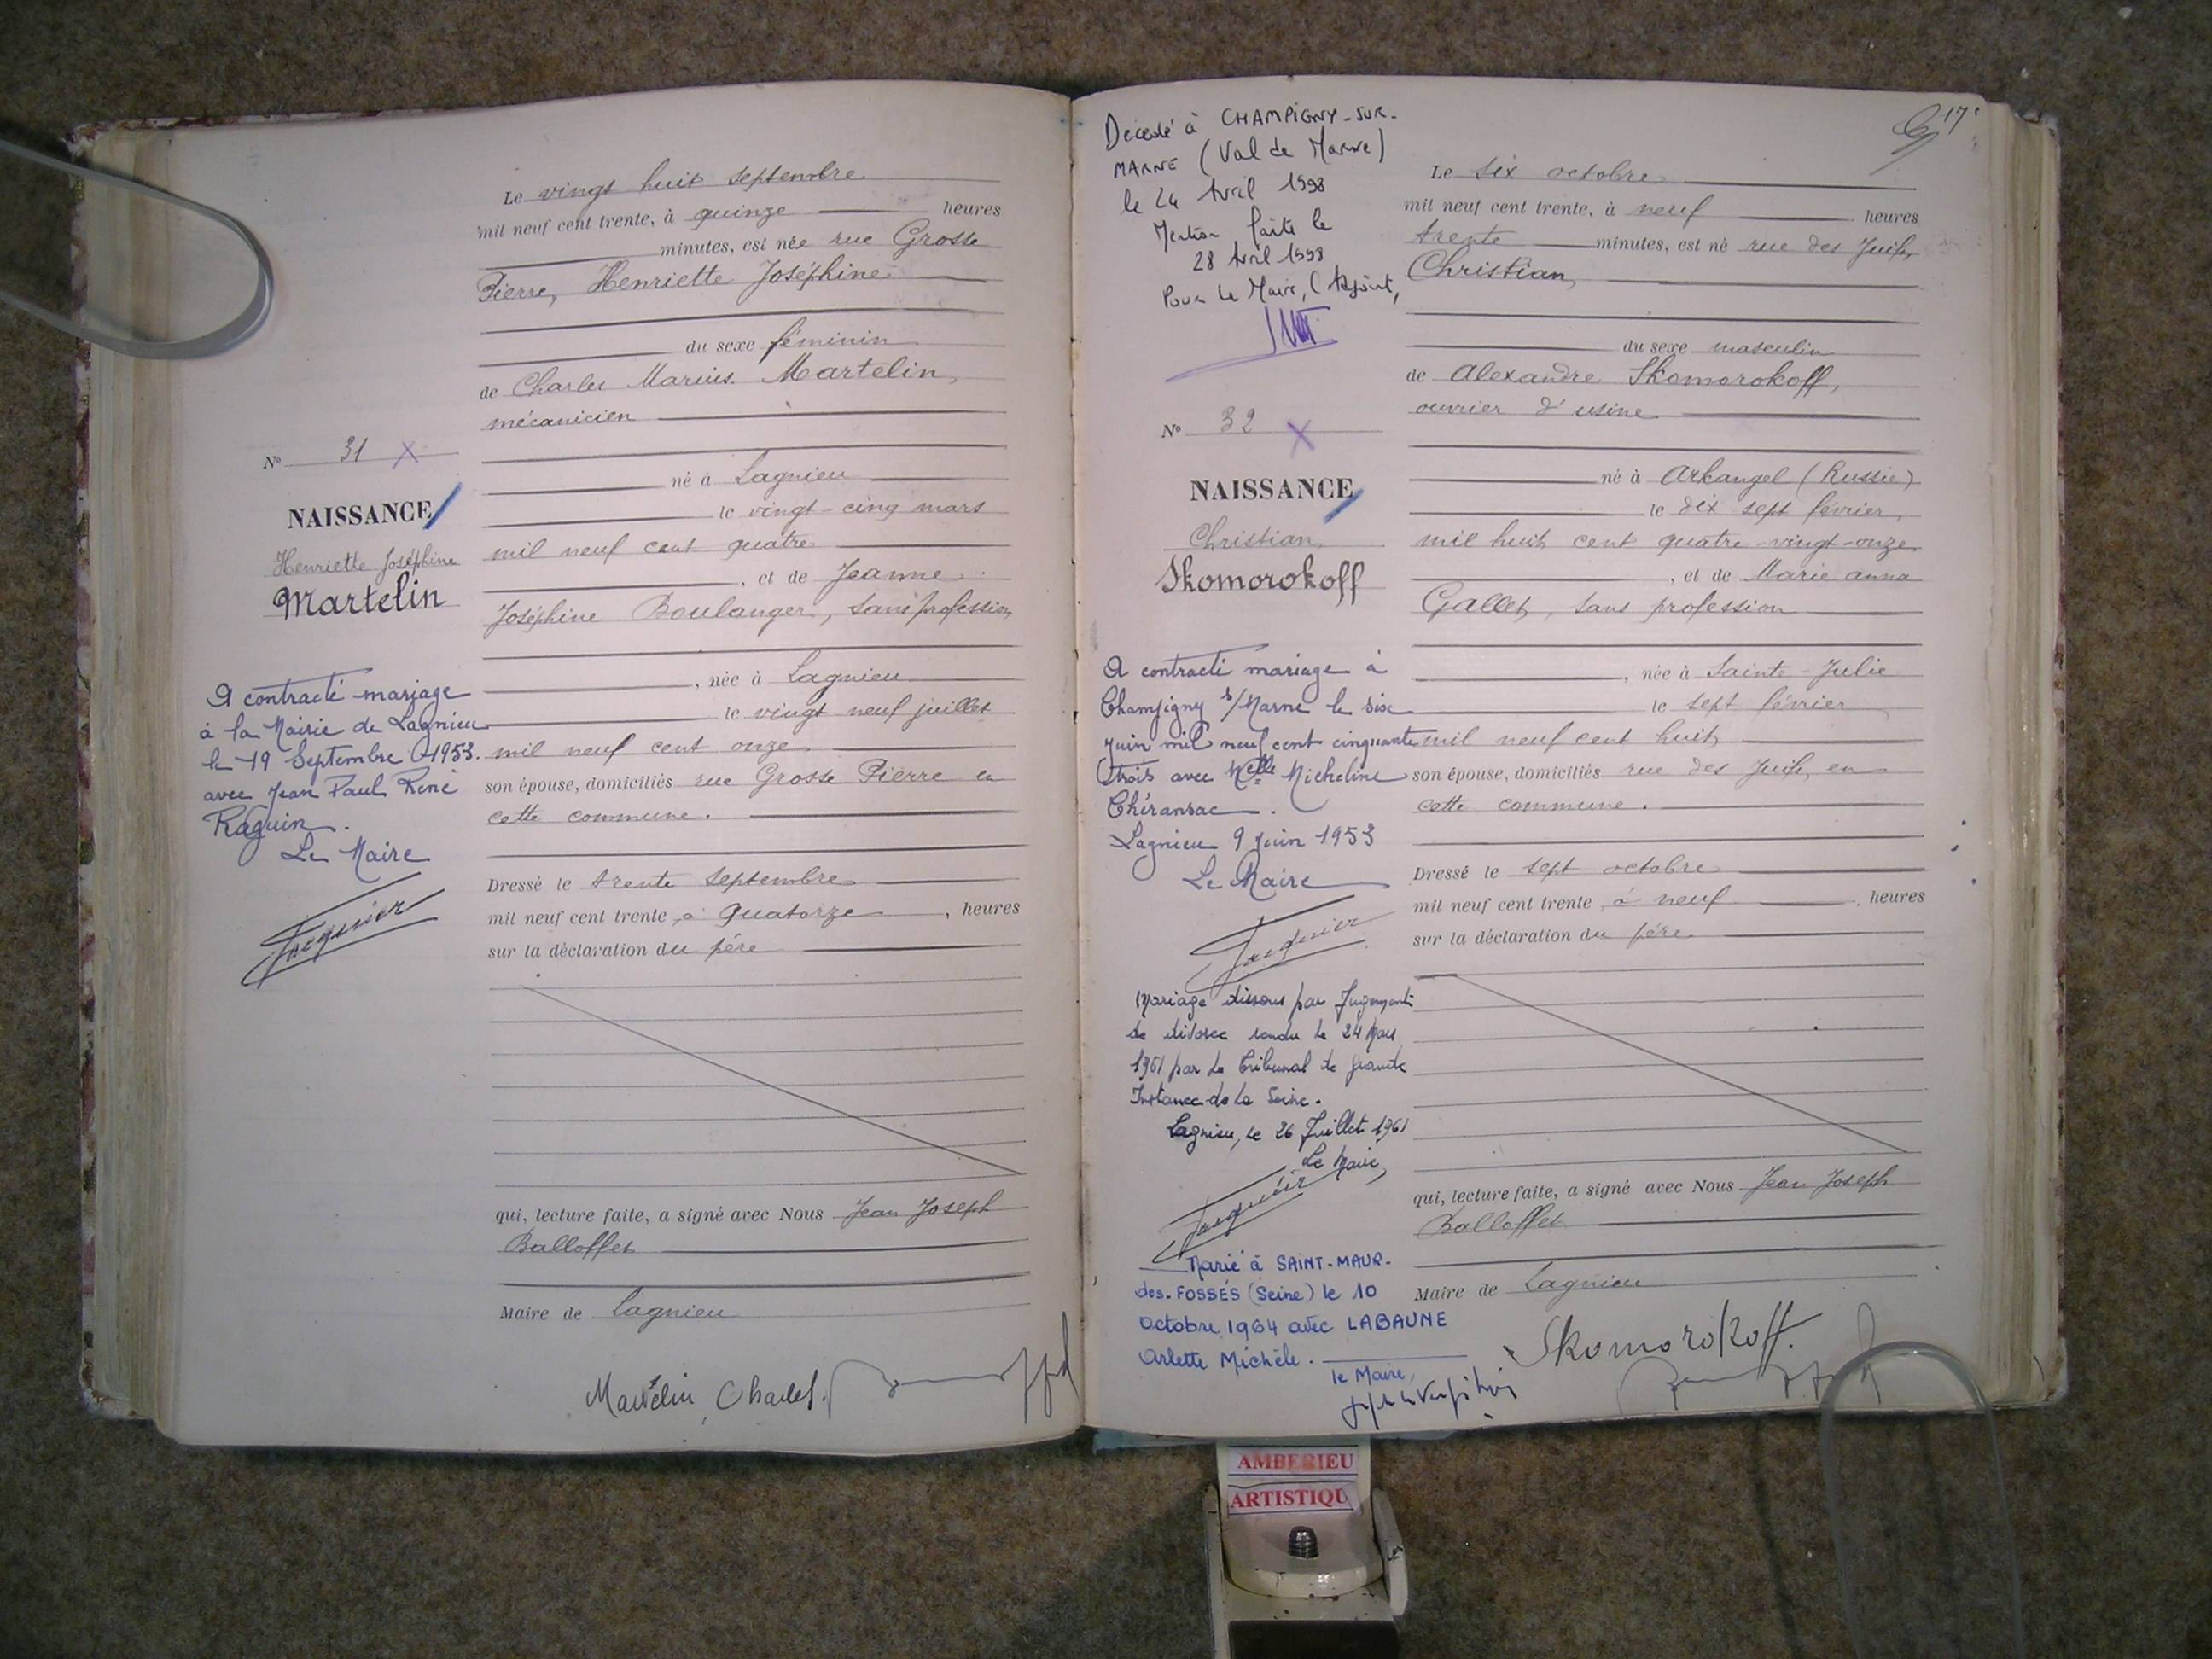 Le vingt huit septembre
mil neuf cent trente, à quinze heures
minutes, est née rue Grosse
Pierre, Henriette Joséphine
du sexe féminin
de Charles Marius Martelin,
mécanicien
né à Lagnieu
le vingt-cinq mars
mil neuf cent quatre
, et de Jeanne
Joséphine Boulanger, sans profession,
, née à Lagnieu
le vingt neuf juillet
mil neuf cent onze
son épouse, domiciliés rue Grosse Pierre en
cette commune.
Dressé le trente septembre
mil neuf cent trente, à quatorze, heures
sur la déclaration du père
qui, lecture faite, a signé avec Nous Jean Joseph
Balloffet
Maire de Lagnieu
Martelin Charles.
N° 31 X
NAISSANCE
Henriette Joséphine
Martelin
A contracté mariage
à la Mairie de Lagnieu
le 19 Septembre 1953.
avec Jean Paul René
Raguin.
Le Maire
17
Décédé à CHAMPIGNY-SUR-
MARNE (Val de Marne)
le 24 Avril 1998
Mention faite le
28 Avril 1998
Pour le Maire, l'Adjoint,
N° 32 X
NAISSANCE
Christian
Skomorokoff
A contracté mariage à
Champigny s/Marne le six
juin mil neuf cent cinquante
trois avec Melle Micheline
Chéransac.
Lagnieu 9 juin 1953
Le Maire
Mariage dissous par Jugement
de divorce rendu le 24 Mars
1961 par le Tribunal de Grande
Instance de la Seine.
Lagnieu, le 26 Juillet 1961
Le Maire,
Marié à SAINT-MAUR-
des-FOSSÉS (Seine) le 10
octobre 1964 avec LABAUNE
Arlette Michèle.
le Maire,
Le six octobre
mil neuf cent trente, à neuf heures
trente minutes, est né rue des Juifs,
Christian,
du sexe masculin
de Alexandre Skomorokoff,
ouvrier d'usine
né à Arkangel (Russie)
le dix sept février,
mil huit cent quatre-vingt-onze
, et de Marie Anna
Gallet, sans profession
, née à Sainte-Julie
le sept février
mil neuf cent huit
son épouse, domiciliés rue des Juifs, en
cette commune.
Dressé le sept octobre
mil neuf cent trente, à neuf heures
sur la déclaration du père
qui, lecture faite, a signé avec Nous Jean Joseph
Balloffet
Maire de Lagnieu
Skomorokoff.
AMBERIEU
ARTISTIQU